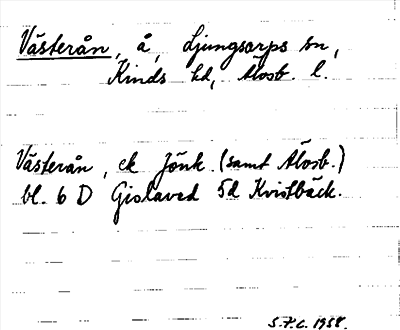 Västerån, å, Ljungsarps sn,
Kinds hd, Älvsb. l.
Västerån, ek Jönk. (samt Älvsb.)
bl. 6 D Gislaved 5d Kvistbäck.
S.P.C. 1958.